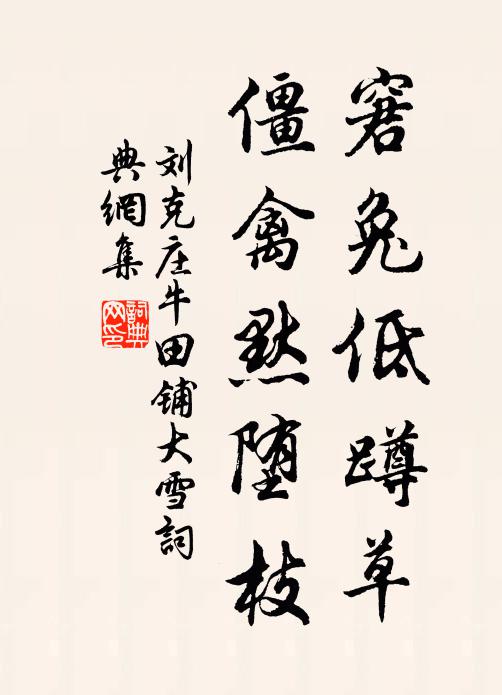 窘兔低蹲草
僵禽默堕枝
刘克庄牛田铺大雪詞
典網集
詞典
网印